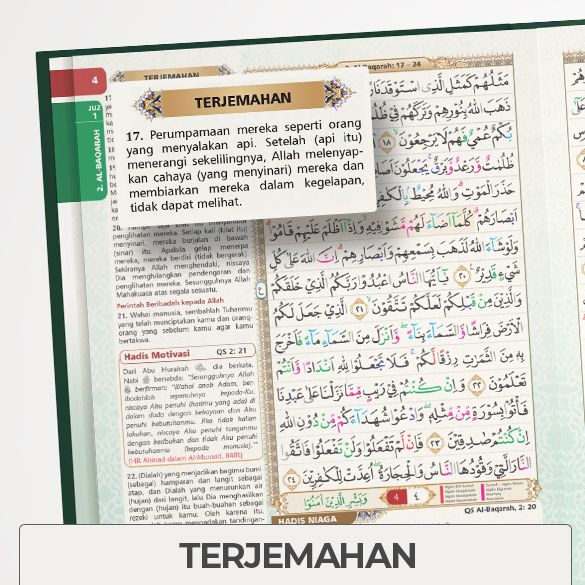 4
JUZ
1
2. AL-BAQARAH
TERJEMAHAN
2. Al-Baqarah: 17 - 24
TERJEMAHAN
17. Perumpamaan mereka seperti orang
yang menyalakan api. Setelah (api itu)
menerangi sekelilingnya, Allah melenyap-
kan cahaya (yang menyinari) mereka dan
membiarkan mereka dalam kegelapan,
tidak dapat melihat.
penglihatan mereka. Setiap kali (kilat itu)
menyinari, mereka berjalan di bawah
(sinar) itu. Apabila gelap menerpa
mereka, mereka berdiri (tidak bergerak).
Sekiranya Allah menghendaki, niscaya
Dia menghilangkan pendengaran dan
penglihatan mereka. Sesungguhnya Allah
Mahakuasa atas segala sesuatu.
Perintah Beribadah kepada Allah
21. Wahai manusia, sembahlah Tuhanmu
yang telah menciptakan kamu dan orang-
orang yang sebelum kamu agar kamu
bertakwa.
Hadis Motivasi QS 2: 21
Dari Abu Hurairah, dia berkata,
Nabi bersabda: "Sesungguhnya Allah
berfirman: 'Wahai anak Adam, ber-
ibadahlah sepenuhnya kepada-Ku,
niscaya Aku penuhi (hatimu yang ada) di
dalam dada dengan kekayaan dan Aku
penuhi kebutuhanmu. Jika tidak kalian
lakukan, niscaya Aku penuhi tanganmu
dengan kesibukan dan tidak Aku penuhi
kebutuhanmu (kepada manusia)."
(HR Ahmad dalam Al-Musnad, 8481)
22. (Dialah) yang menjadikan bagimu bumi
(sebagai) hamparan dan langit sebagai
atap, dan Dialah yang menurunkan air
(hujan) dari langit, lalu Dia menghasilkan
dengan (hujan) itu buah-buahan sebagai
rezeki untuk kamu. Oleh karena itu,
مَثَلُهُمْ كَمَثَلِ الَّذِى اسْتَوْقَدَ نَارًا
ذَهَبَ اللّٰهُ بِنُوْرِهِمْ وَتَرَكَهُمْ فِيْ
بُكْمٌ عُمْيٌ فَهُمْ لَا يَرْجِعُوْنَ ۙ ١٨
ظُلُمٰتٌ وَّرَعْدٌ وَّبَرْقٌۚ يَجْعَلُوْنَ
حَذَرَ الْمَوْتِۗ وَاللّٰهُ مُحِيْطٌۢ بِالْكٰفِرِيْنَ
اَبْصَارَهُمْ ۗ كُلَّمَآ اَضَاۤءَ لَهُمْ مَّشَوْا فِيْهِ ۙ وَاِذَآ اَظْلَمَ عَلَيْهِمْ قَامُوْا ۗ
وَلَوْ شَاۤءَ اللّٰهُ لَذَهَبَ بِسَمْعِهِمْ وَاَبْصَارِهِمْ ۗ اِنَّ اللّٰهَ عَلٰى كُلِّ
شَيْءٍ قَدِيْرٌ ࣖ ٢٠ يٰٓاَيُّهَا النَّاسُ اعْبُدُوْا رَبَّكُمُ الَّذِيْ خَلَقَكُمْ
وَالَّذِيْنَ مِنْ قَبْلِكُمْ لَعَلَّكُمْ تَتَّقُوْنَ ۙ ٢١ الَّذِيْ جَعَلَ لَكُمُ
الْاَرْضَ فِرَاشًا وَّالسَّمَاۤءَ بِنَاۤءً ۖ وَّاَنْزَلَ مِنَ السَّمَاۤءِ مَاۤءً فَاَخْرَجَ
بِهٖ مِنَ الثَّمَرٰتِ رِزْقًا لَّكُمْ ۚ فَلَا تَجْعَلُوْا لِلّٰهِ اَنْدَادًا وَّاَنْتُمْ
تَعْلَمُوْنَ ٢٢ وَاِنْ كُنْتُمْ فِيْ رَيْبٍ مِّمَّا نَزَّلْنَا عَلٰى عَبْدِنَا
فَأْتُوْا بِسُوْرَةٍ مِّنْ مِّثْلِهٖ ۖ وَادْعُوْا شُهَدَاۤءَكُمْ مِّنْ دُوْنِ اللّٰهِ
اِنْ كُنْتُمْ صٰدِقِيْنَ ٢٣ فَاِنْ لَّمْ تَفْعَلُوْا وَلَنْ تَفْعَلُوْا فَاتَّقُوا
النَّارَ الَّتِيْ وَقُوْدُهَا النَّاسُ وَالْحِجَارَةُ ۖ اُعِدَّتْ لِلْكٰفِرِيْنَ ٢٤
وَبَشِّرِ الَّذِيْنَ اٰمَنُوْا
4 ٤
HADIS NIAGA
QS Al-Baqarah, 2: 20
TERJEMAHAN